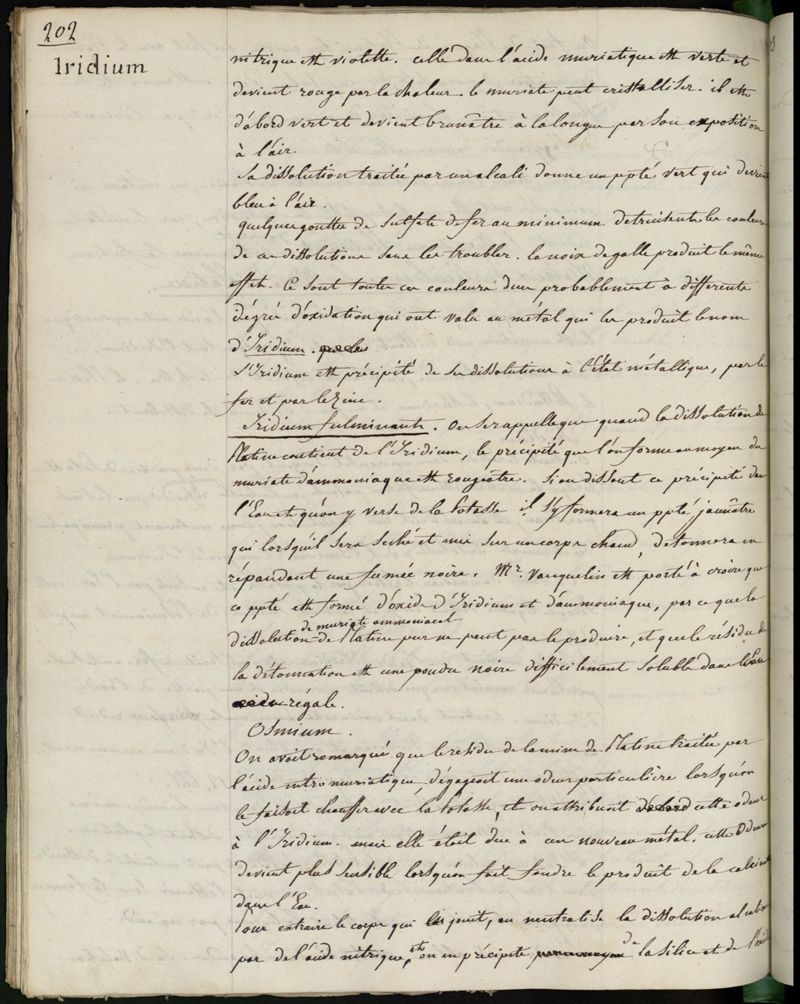 202
Iridium
nitrique est violette. celle dans l'acide muriatique est verte et
devient rouge par la chaleur. le muriate peut cristalliser. il est
d'abord vert et devient brunâtre à la longue par son exposition
à l'air.
Sa dissolution traitée par un alcali donne un ppté vert qui devient
bleu à l'air.
quelques gouttes de sulfate de fer au minimum detruisent les couleurs
de ces dissolutions sans les troubler. la noix de galle produit le même
effet. Ce sont toutes ces couleurs dues probablement à differents
dégrés d'oxidation qui ont valu au métal qui les produit le nom
d'Iridium.
L'Iridium est précipité de ses dissolutions à l'état métallique, par le
fer et par le zinc.
Iridium fulminant. On se rappelle que quand la dissolution de
Platine contient de l'Iridium, le précipité que l'on forme au moyen du
muriate d'ammoniaque est rougeâtre. Si on dissout ce précipité dans
l'Eau et qu'on y verse de la Potasse il s'y formera un ppté jaunâtre
qui lorsqu'il sera séché et mis sur un corps chaud, detonnera en
répandant une fumée noire. Mr. Vauquelin est porté à croire que
ce ppté est formé d'oxide d'Iridium et d'ammoniaque, par ce que la
de muriate ammoniacal
dissolution de Platine pur ne peut pas le produire, et que le résidu de
la détonnation est une poudre noire difficilement soluble dans l'Eau
régale.
Osmium.
On avoit remarqué que le residu de la mine de Platine traitée par
l'acide nitro muriatique, dégageoit une odeur particulière lorsqu'on
le faisoit chauffer avec la Potasse, et on attribuoit d'abord cette odeur
à l'Iridium. mais elle étoit due à un nouveau métal. cette odeur
devient plus sensible lorsqu'on fait foudre le produit de la calcination
dans l'Eau.
Pour extraire le corps qui en jouit, on neutralise la dissolution alcaline
par de l'acide nitrique, et on en précipite de la silice et de l'oxide